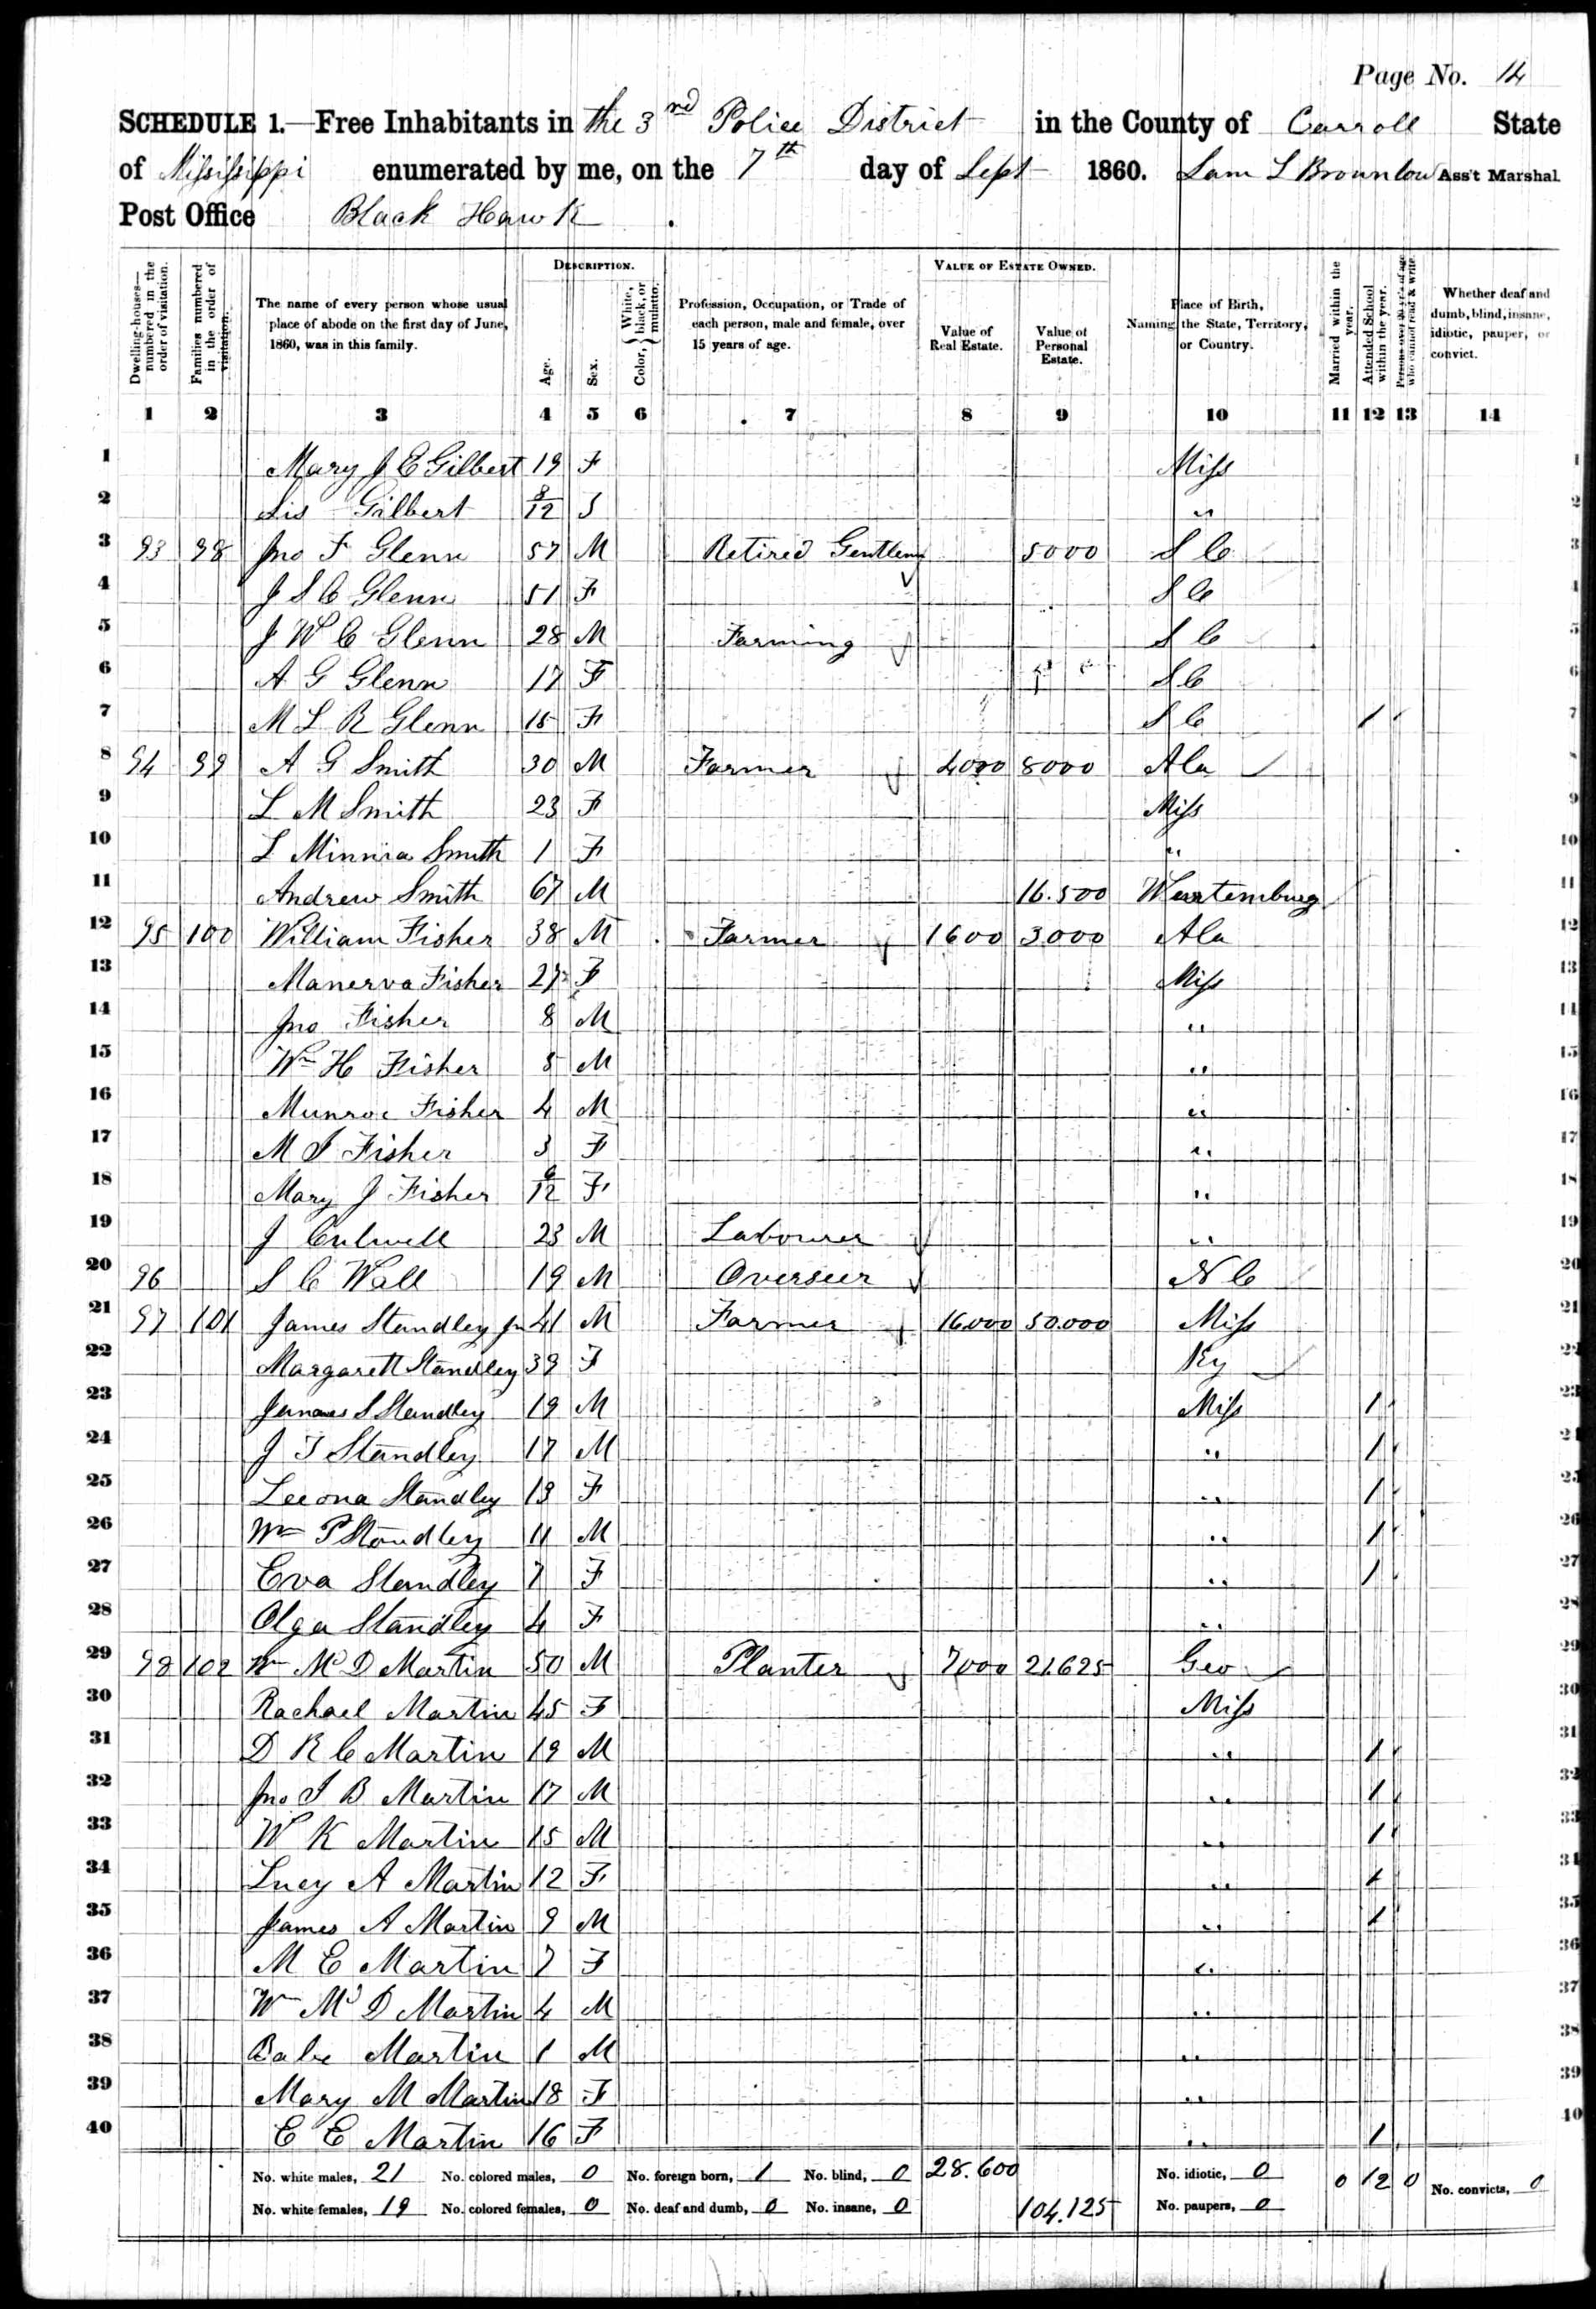 Page No. 14
SCHEDULE 1.—Free Inhabitants in the 3rd Police District in the County of Carroll State
of Mississippi enumerated by me, on the 7th day of Sept 1860. Sam L Brownlow Ass't Marshal
Post Office Black Hawk
DESCRIPTION. VALUE OF ESTATE OWNED.
Dwelling-houses—numbered in the order of visitation. Families numbered in the order of visitation. The name of every person whose usual place of abode on the first day of June, 1860, was in this family. Age. Sex. Color, { White, black, or mulatto. Profession, Occupation, or Trade of each person, male and female, over 15 years of age. Value of Real Estate. Value of Personal Estate. Place of Birth, Naming the State, Territory, or Country. Married within the year. Attended School within the year. Persons over 20 y'rs of age who cannot read & write. Whether deaf and dumb, blind, insane, idiotic, pauper, or convict.
1 2 3 4 5 6 7 8 9 10 11 12 13 14
1 Mary J E Gilbert 19 F Miss 1
2 Sis Gilbert 8/12 F " 2
3 93 98 Jno F Glenn 57 M Retired Gentlem 5000 S C 3
4 J S C Glenn 51 F S C 4
5 J W C Glenn 28 M Farming S C 5
6 A G Glenn 17 F S C 6
7 M L R Glenn 15 F S C 1 7
8 94 99 A G Smith 30 M Farmer 4000 8000 Ala 8
9 L M Smith 23 F Miss 9
10 L Minnia Smith 1 F " 10
11 Andrew Smith 67 M 16.500 Wurtemburg 11
12 95 100 William Fisher 38 M Farmer 1600 3000 Ala 12
13 Manerva Fisher 27 F Miss 13
14 Jno Fisher 8 M " 14
15 Wm H Fisher 5 M " 15
16 Munroe Fisher 4 M " 16
17 M J Fisher 3 F " 17
18 Mary J Fisher 6/12 F " 18
19 J Culwell 23 M Labourer " 19
20 96 S C Wall 19 M Overseer N C 20
21 97 101 James Standley Jr 41 M Farmer 16.000 50.000 Miss 21
22 Margarett Standley 39 F Ky 22
23 James S Standley 19 M Miss 1 23
24 J T Standley 17 M " 1 24
25 Leeona Standley 13 F " 1 25
26 Wm P Standley 11 M " 1 26
27 Eva Standley 7 F " 1 27
28 Olga Standley 4 F " 28
29 98 102 Wm Mc D Martin 50 M Planter 7000 21.625 Geo 29
30 Rachael Martin 45 F Miss 30
31 D R C Martin 19 M " 1 31
32 Jno J B Martin 17 M " 1 32
33 W K Martin 15 M " 1 33
34 Lucy A Martin 12 F " 1 34
35 James A Martin 9 M " 1 35
36 M E Martin 7 F " 36
37 Wm Mc D Martin 4 M " 37
38 Babe Martin 1 M " 38
39 Mary M Martin 18 F " 39
40 E E Martin 16 F " 1 40
No. white males, 21 No. colored males, 0 No. foreign born, 1 No. blind, 0 28.600 No. idiotic, 0 0 12 0 No. convicts, 0
No. white females, 19 No. colored females, 0 No. deaf and dumb, 0 No. insane, 0 104.125 No. paupers, 0